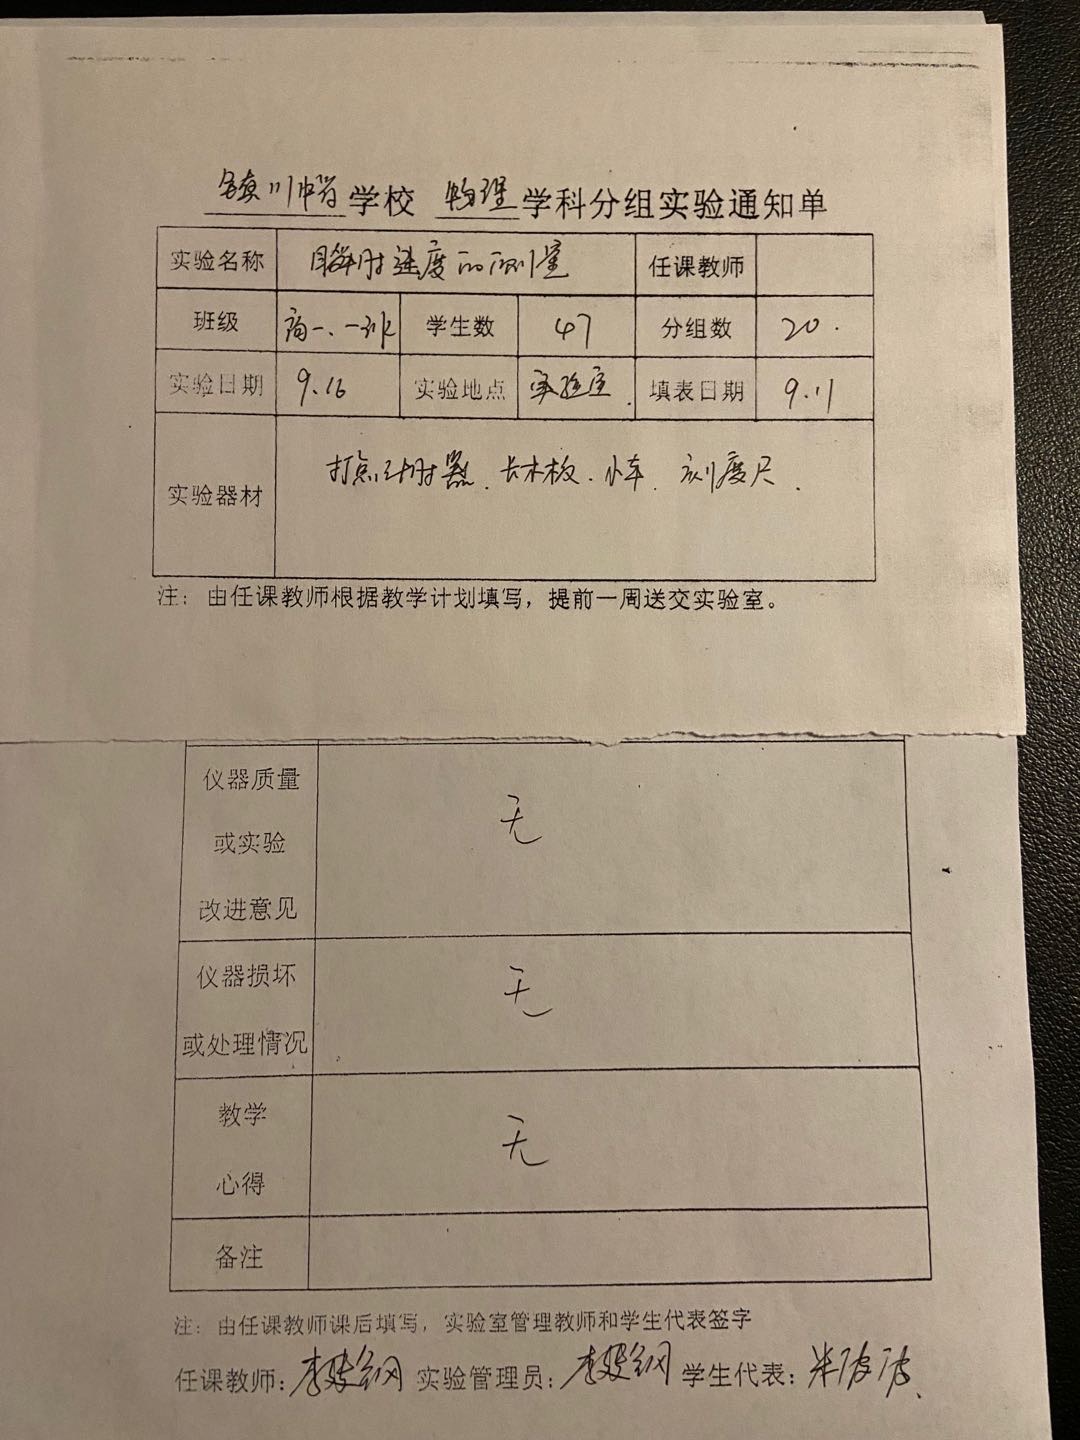 镇川中学 学校 物理 学科分组实验通知单
实验名称 瞬时速度的测量 任课教师
班级 高一、一班 学生数 47 分组数 20.
实验日期 9.16 实验地点 实验室. 填表日期 9.11
实验器材 打点计时器、长木板、小车、刻度尺.
注：由任课教师根据教学计划填写，提前一周送交实验室。
仪器质量
或实验 无
改进意见
仪器损坏 无
或处理情况
教学 无
心得
备注
注：由任课教师课后填写，实验室管理教师和学生代表签字
任课教师： 实验管理员： 学生代表：